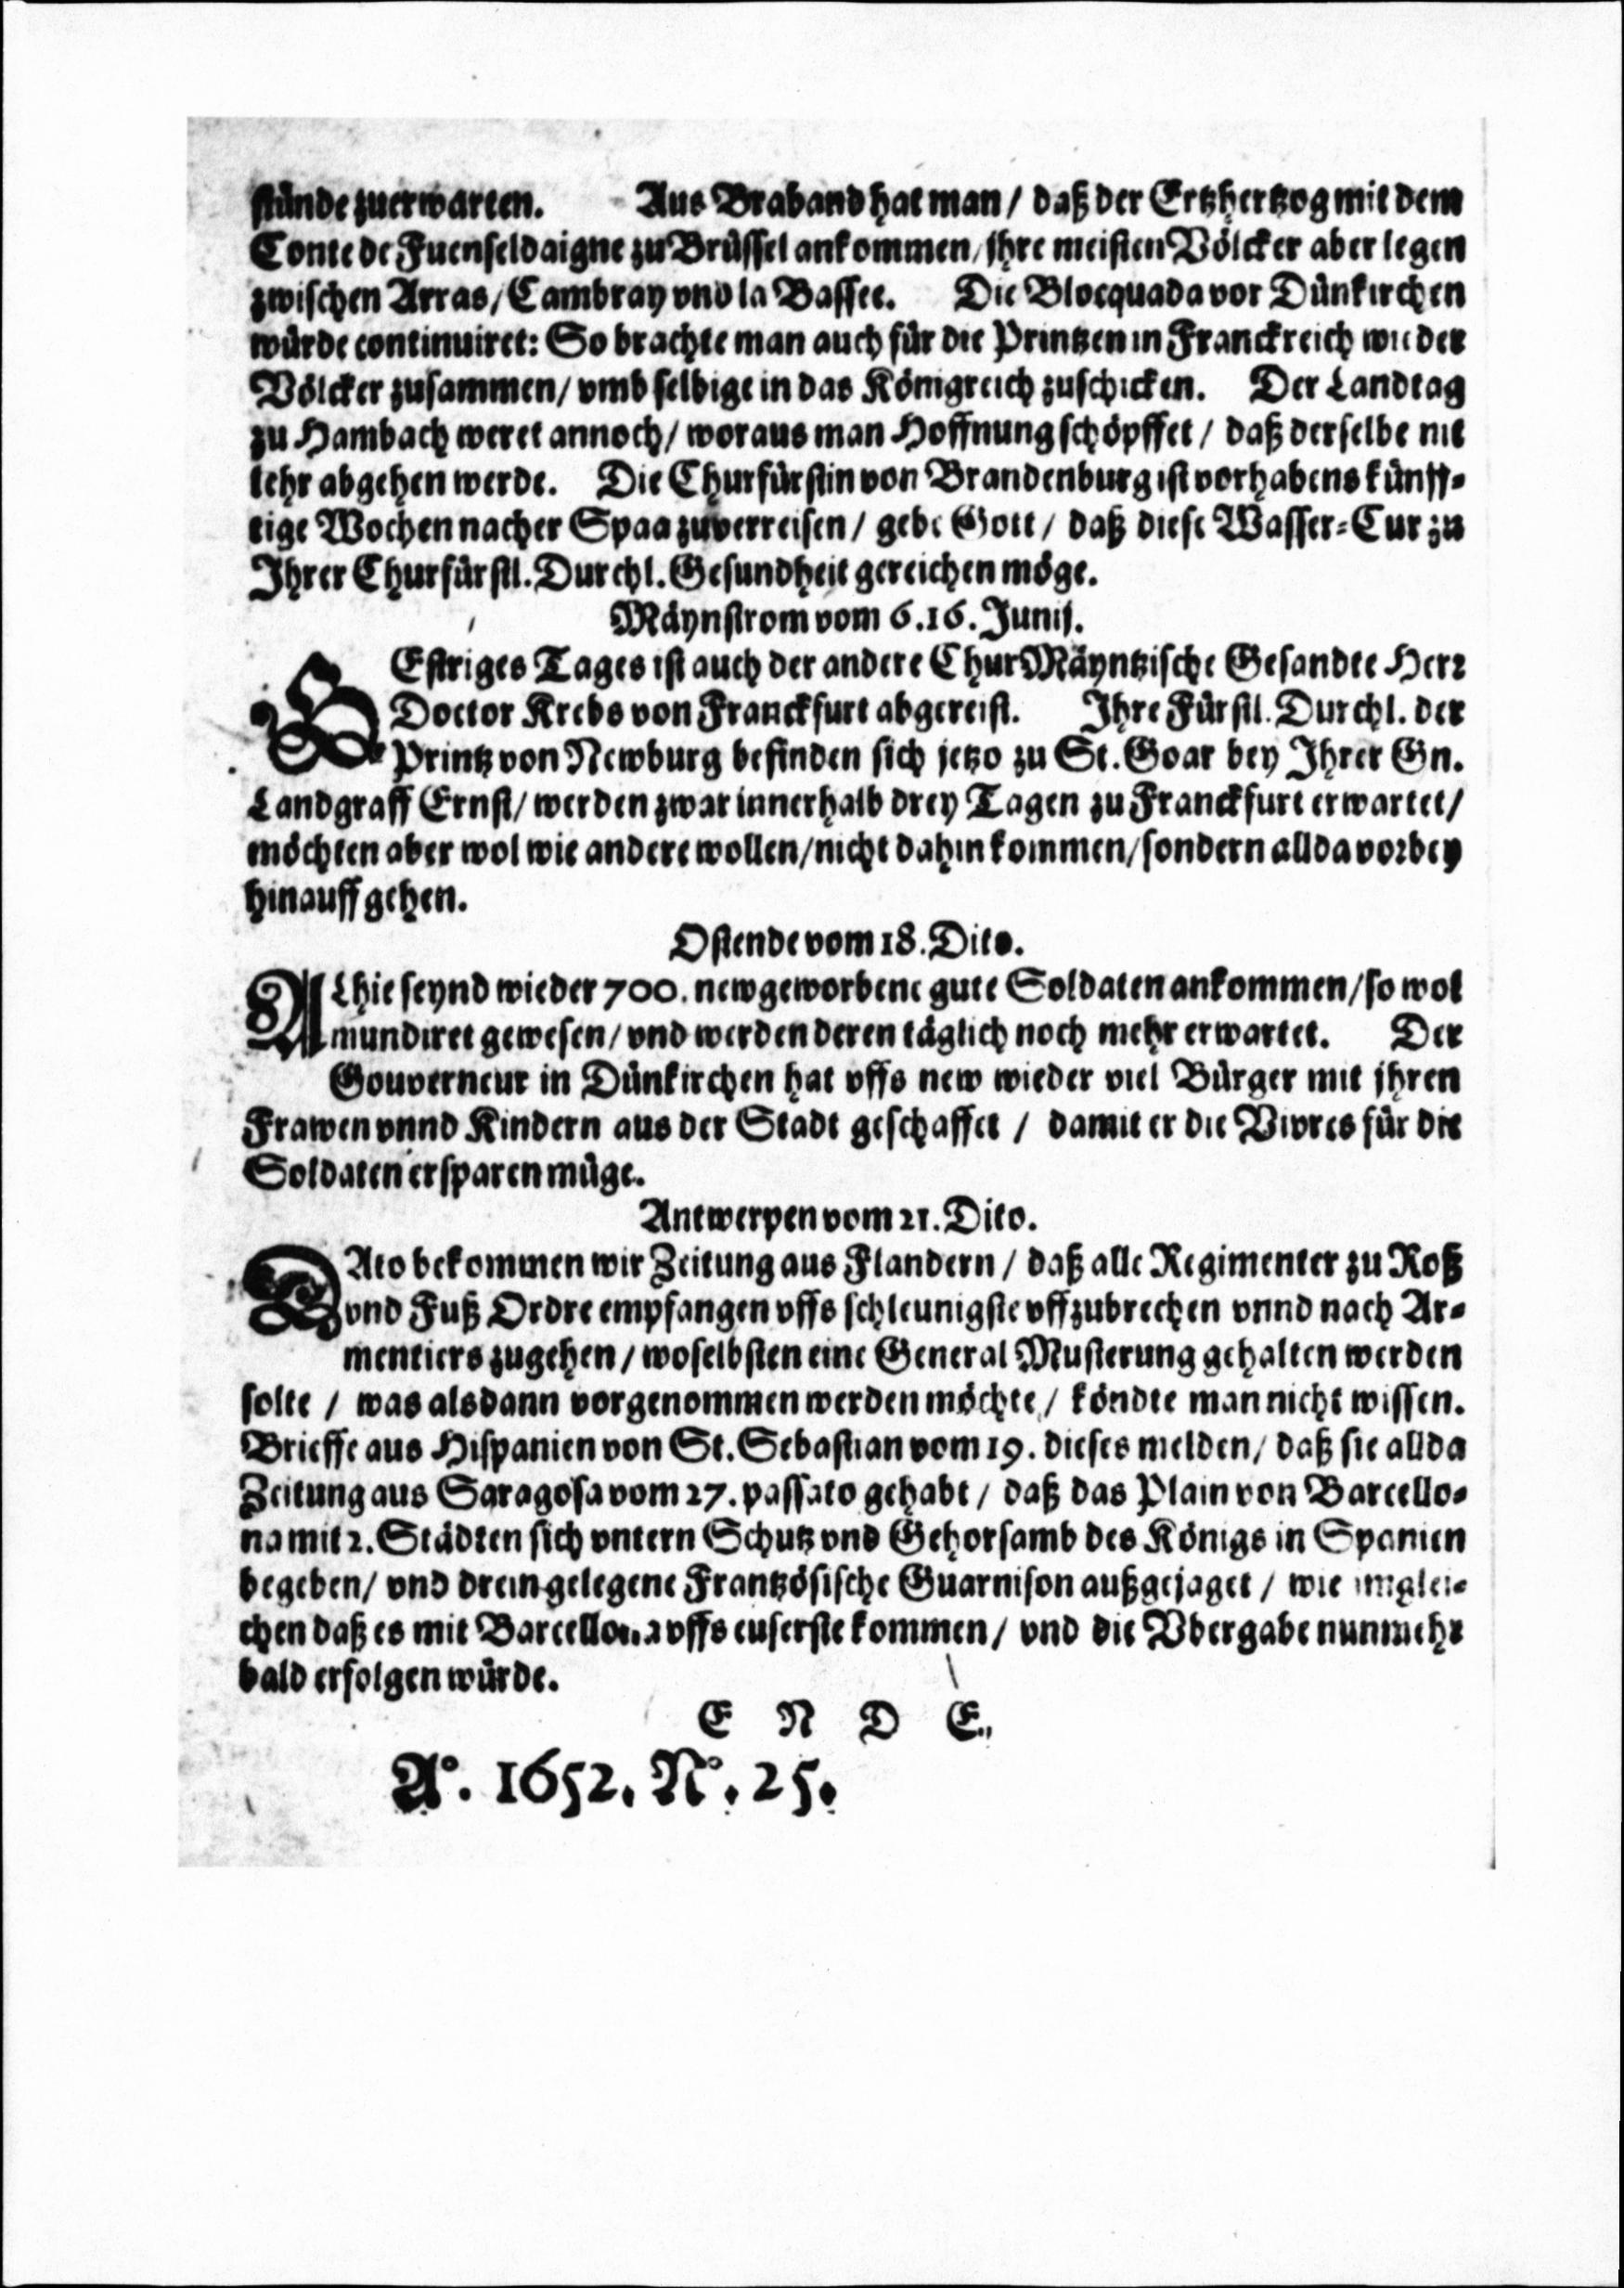 stünde zuerwarten. Aus Braband hat man / daß der Ertzhertzog mit dem
Conte de Fuenseldaigne zu Brüssel ankommen / jhre meisten Völcker aber legen
zwischen Arras / Cambray vnd la Bassee. Die Blocquada vor Dünkirchen
würde continuiret: So brachte man auch für die Printzen in Franckreich wieder
Völcker zusammen / vmb selbige in das Königreich zuschicken. Der Landtag
zu Hambach weret annoch / woraus man Hoffnung schöpffet / daß derselbe nit
lehr abgehen werde. Die Churfürstin von Brandenburg ist vorhabens künff-
tige Wochen nacher Spaa zuverreisen / gebe Gott / daß diese Wasser-Cur zu
Ihrer Churfürstl. Durchl. Gesundheit gereichen möge.
Mäynstrom vom 6.16. Junij.
GEstriges Tages ist auch der andere ChurMäyntzische Gesandte Herr
Doctor Krebs von Franckfurt abgereist. Ihre Fürstl. Durchl. der
Printz von Newburg befinden sich jetzo zu St. Goar bey Ihrer Gn.
Landgraff Ernst / werden zwar innerhalb drey Tagen zu Franckfurt erwartet /
möchten aber wol wie andere wollen / nicht dahin kommen / sondern allda vorbey
hinauff gehen.
Ostende vom 18. Dito.
ALhie seynd wieder 700. newgeworbene gute Soldaten ankommen / so wol
mundiret gewesen / vnd werden deren täglich noch mehr erwartet. Der
Gouverneur in Dünkirchen hat vffs new wieder viel Bürger mit jhren
Frawen vnnd Kindern aus der Stadt geschaffet / damit er die Vivres für die
Soldaten ersparen müge.
Antwerpen vom 21. Dito.
DAto bekommen wir Zeitung aus Flandern / daß alle Regimenter zu Roß
vnd Fuß Ordre empfangen vffs schleunigste vffzubrechen vnnd nach Ar-
mentiers zugehen / woselbsten eine General Musterung gehalten werden
solte / was alsdann vorgenommen werden möchte / köndte man nicht wissen.
Brieffe aus Hispanien von St. Sebastian vom 19. dieses melden / daß sie allda
Zeitung aus Saragosa vom 27. passato gehabt / daß das Plain von Barcello-
na mit 2. Städten sich vntern Schutz vnd Gehorsamb des Königs in Spanien
begeben / vnd drein gelegene Frantzösische Guarnison außgejaget / wie imglei-
chen daß es mit Barcellona vffs euserste kommen / vnd die Vbergabe nunmehr
bald erfolgen würde.
E N D E.
A°. 1652. N°. 25.